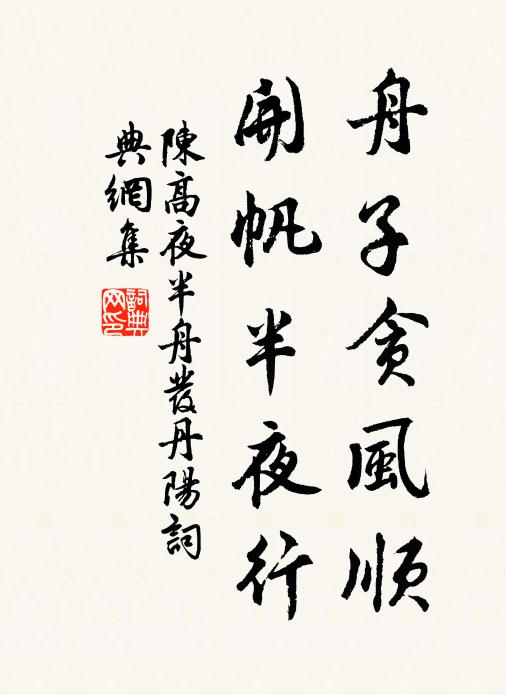 舟子貪風順
開帆半夜行
陳高夜半舟發丹陽詞
典網集
詞典
网印